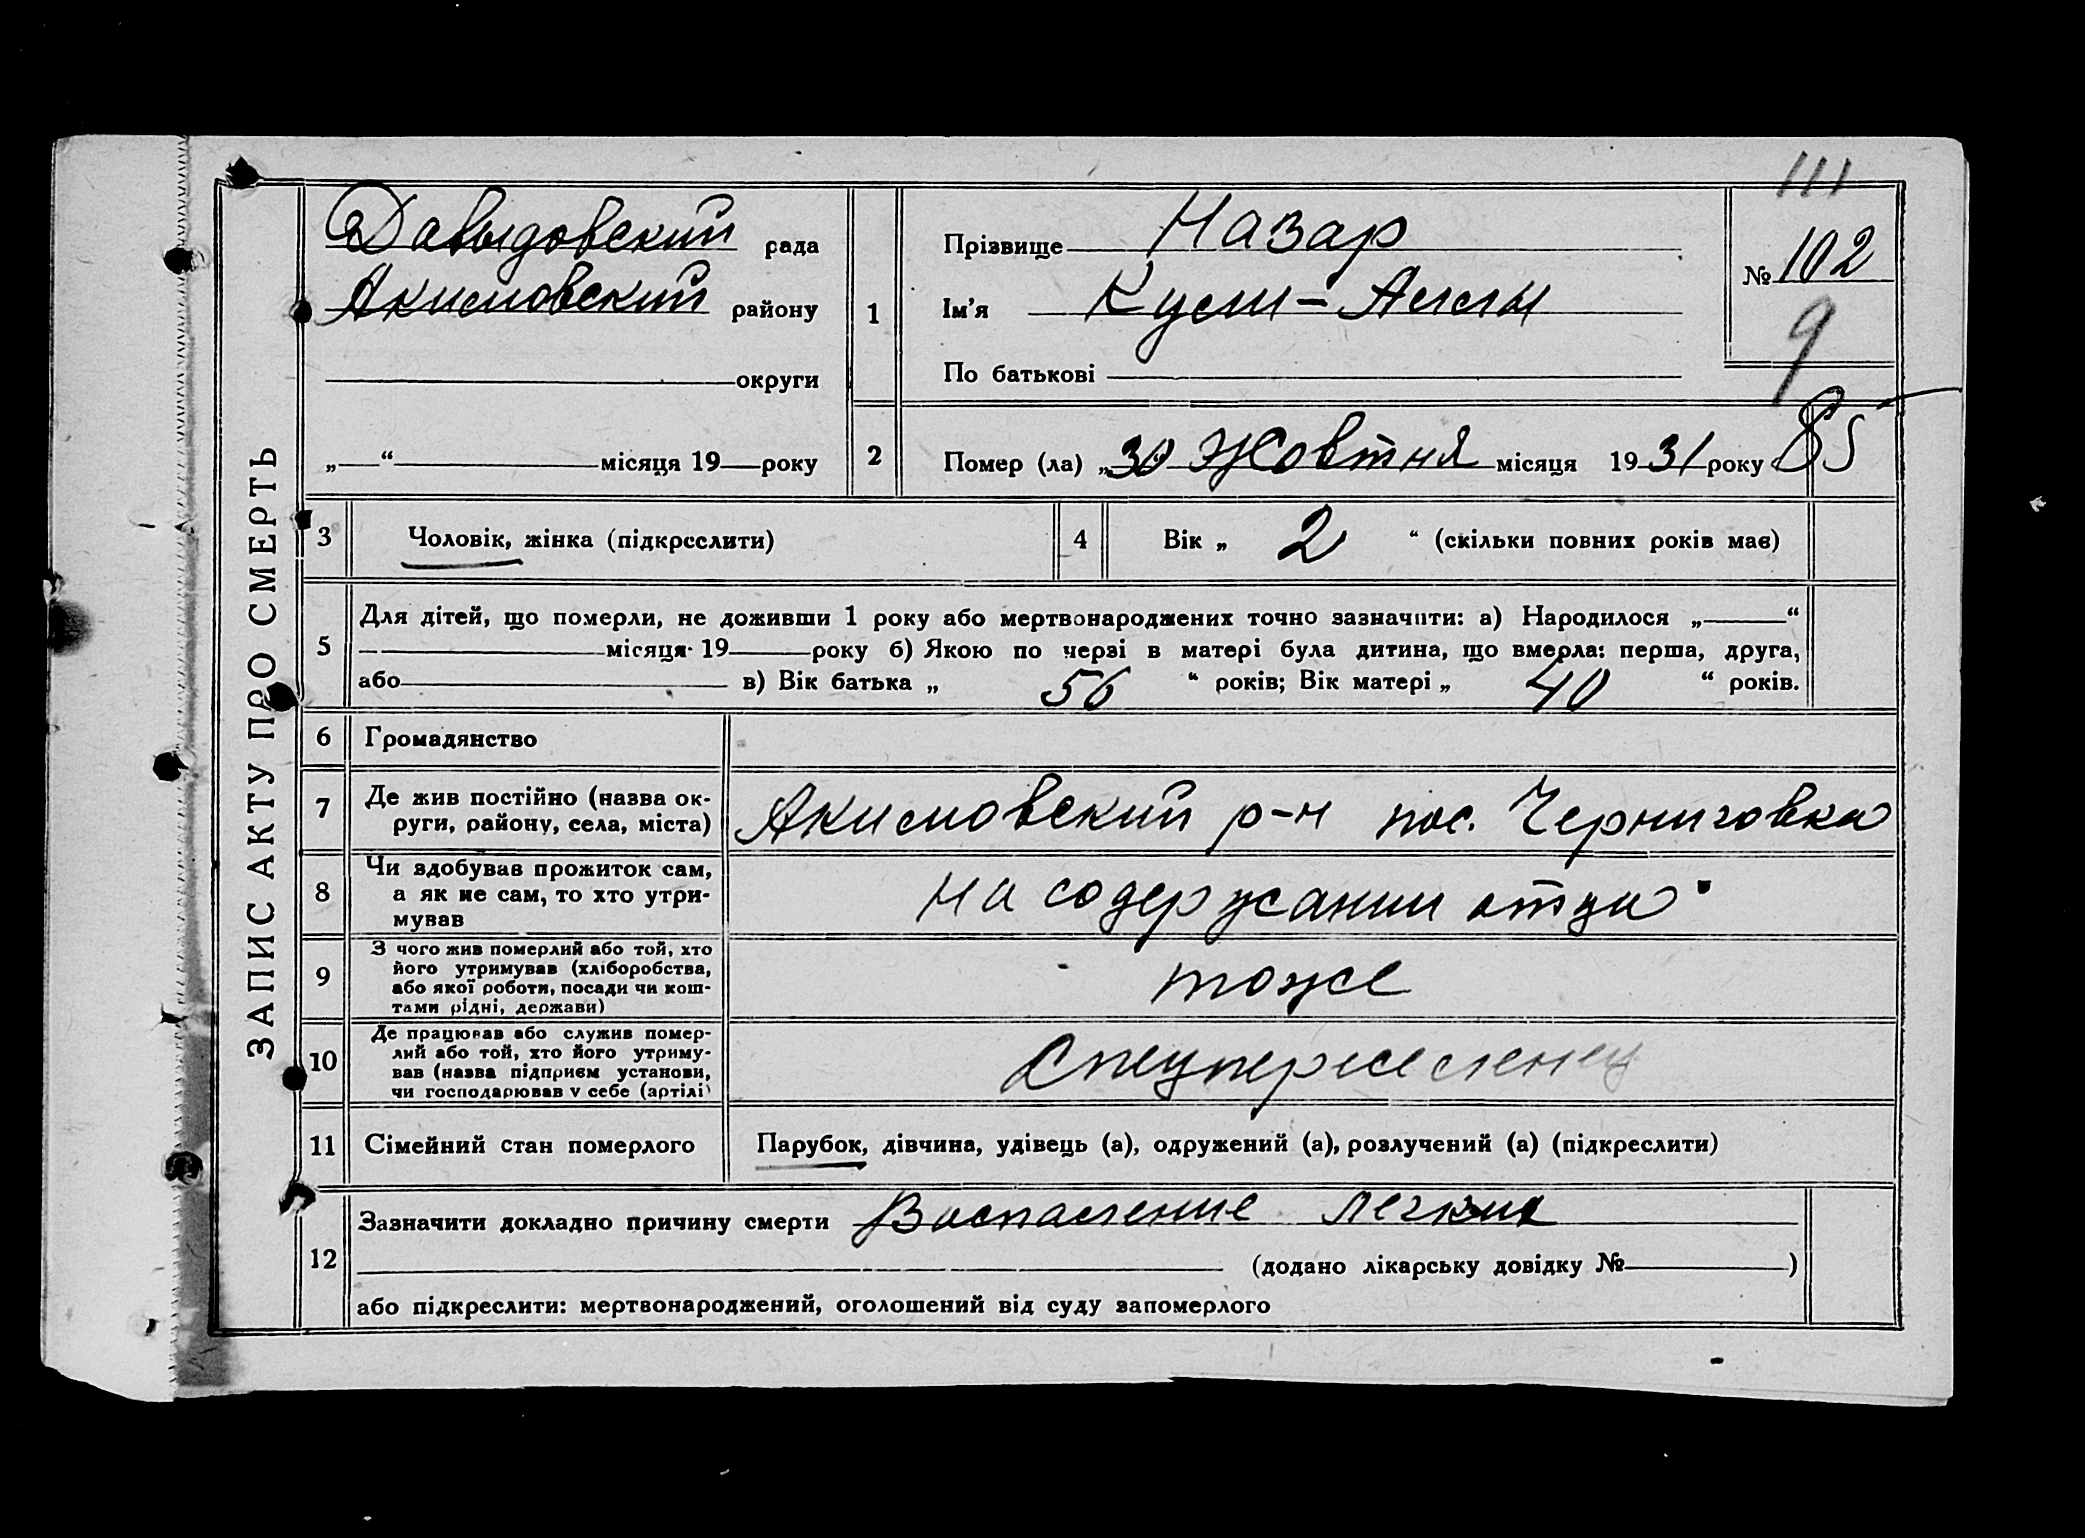 111
ЗАПИС АКТУ ПРО СМЕРТЬ
Давыдовский рада
Акимовский району
округи
„—“ місяця 19—року
1
Прізвище Назар
Ім'я
По батькові
№ 102
9
2
Помер (ла) „30 Жовтня місяця 1931 року
85
3
Чоловік, жінка (підкреслити)
4
Вік „ 2 “ (скільки повних років має)
5
Для дітей, що померли, не доживши 1 року або мертвонароджених точно зазначити: а) Народилося „—“
— місяця 19— року б) Якою по черзі в матері була дитина, що вмерла: перша, друга,
або— в) Вік батька „ 56 “ років; Вік матері „ 40 “ років.
6
Громадянство
7
Де жив постійно (назва ок-
руги, району, села, міста)
Акимовский р-н пос. Черниговка
8
Чи здобував прожиток сам,
а як не сам, то хто утри-
мував
на содержании отца
9
З чого жив померлий або той, хто
його утримував (хліборобства,
або якої роботи, посади чи кош-
тами рідні, держави)
тоже
10
Де працював або служив помер-
лий або той, хто його утриму-
вав (назва підприєм установи,
чи господарював у себе (артілі)
Спецпереселенец
11
Сімейний стан померлого
Парубок, дівчина, удівець (а), одружений (а), розлучений (а) (підкреслити)
12
Зазначити докладно причину смерти Воспаление легких
(додано лікарську довідку №—)
або підкреслити: мертвонароджений, оголошений від суду запомерлого